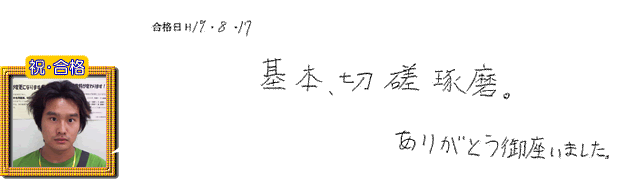 合格日 H19・8・17
祝・合格
基本、切磋琢磨。
ありがとう御座いました。